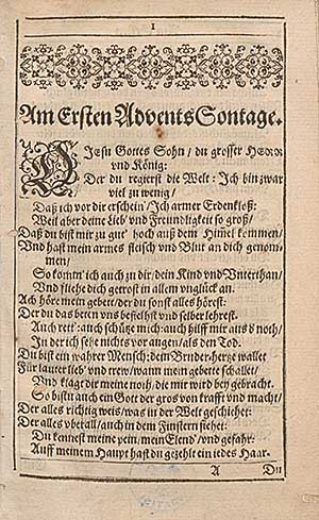 1
Am Ersten Advents Sontage.
O Jesu Gottes Sohn / du grosser HERR
vnd König:
Der du regierst die Welt: Ich bin zwar
viel zu wenig /
Daß ich vor dir erschein / Ich armer Erdenkloß:
Weil aber deine Lieb' vnd Freundligkeit so groß /
Daß du bist mir zu gut' hoch auß dem Himel kommen /
Vnd hast mein armes fleisch vnd Blut an dich genom-
men /
So komm' ich auch zu dir / dein Kind vnd Vnterthan /
Vnd fliehe dich getrost in allem vnglück an.
Ach höre mein gebett / der du sonst alles hörest:
Der du das beten vns befielhst vnd selber lehrest.
Auch rett': auch schütze mich: auch hilff mir aus d' noth /
In der ich sehe nichts vor augen / als den Tod.
Du bist ein wahrer Mensch: dein Bruder-hertze wallet
Für lauter lieb' vnd trew / wann mein gebette schallet /
Vnd klagt dir meine noth / die mir wird bey gebracht.
So bistu auch ein Gott der gros von krafft vnd macht /
Der alles richtig weis / was in der Welt geschiehet:
Der alles vberall / auch in dem Finstern siehet:
Du kennest meine pein / mein Elend' / vnd gefahr:
Auff meinem Haupt hast du gezehlt ein iedes Haar.
A Du